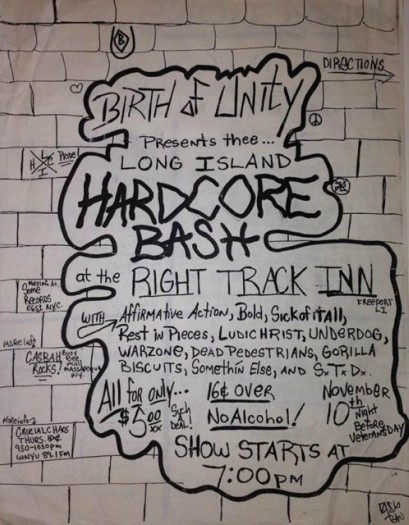 B
DIRECTIONS
BIRTH of UNITY
Presents thee...
LONG ISLAND
HARDCORE
BASH
at the RIGHT TRACK INN
FREEPORT
LI
WITH Affirmative Action, Bold, Sickofitall,
Rest in Pieces, LUDICHRIST, UNDERDOG,
WARZONE, DEAD PEDESTRIANS, GORILLA
BISCUITS, Somethin Else, AND S.T.D.
All for only...
$5.00
Such
Deal!
16¢ OVER
No Alcohol!
November
10th Night
Before
Veterans DAY
SHOW STARTS AT
7:00pm
Some
RECORDS
NYC.
More info
CASBAH
Rocks!
More info
CRUCIAL CHAOS
THURS.
930-1030pm
WNYU 89.1 FM